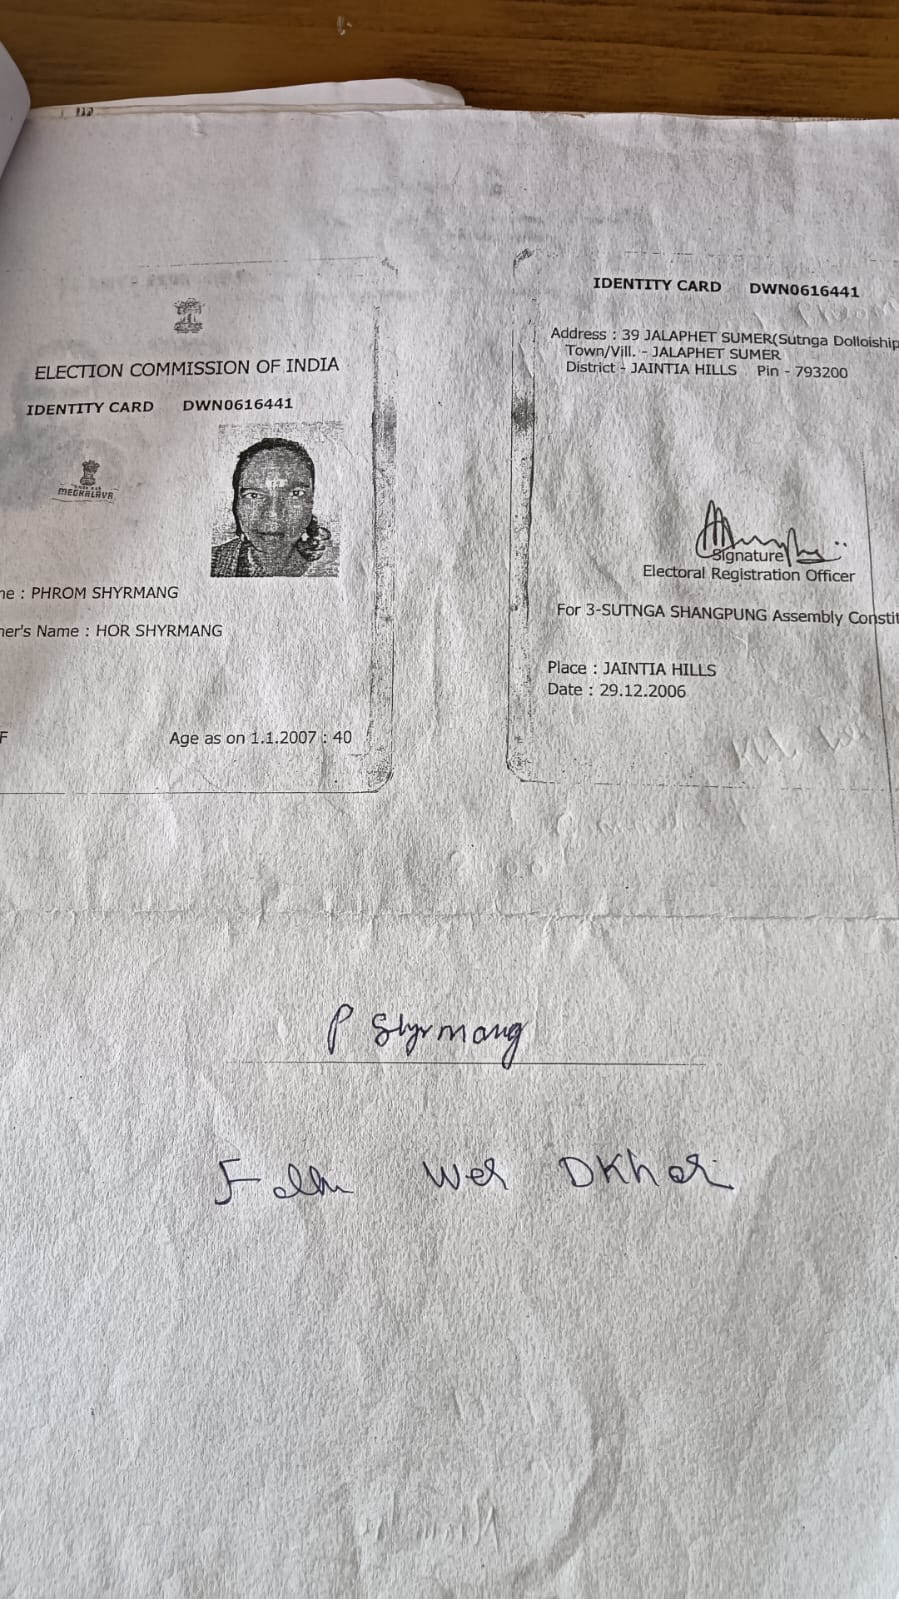 ELECTION COMMISSION OF INDIA
IDENTITY CARD DWN0616441
MEGHALAYA
ne : PHROM SHYRMANG
ner's Name : HOR SHYRMANG
F
Age as on 1.1.2007 : 40
IDENTITY CARD DWN0616441
Address : 39 JALAPHET SUMER(Sutnga Dolloiship
Town/Vill. - JALAPHET SUMER
District - JAINTIA HILLS Pin - 793200
Signature
Electoral Registration Officer
For 3-SUTNGA SHANGPUNG Assembly Constit
Place : JAINTIA HILLS
Date : 29.12.2006
P Shyrmang
Wer DKhar